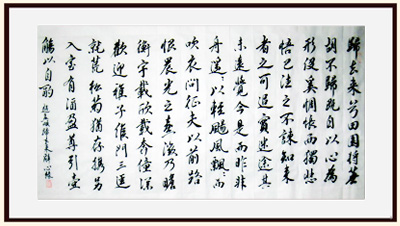 歸去來兮田園將蕪
胡不歸既自以心為
形役奚惆悵而獨悲
悟已往之不諫知來
者之可追實迷途其
未遠覺今是而昨非
舟遙々以輕颺風飄々而
吹衣問征夫以前路
恨晨光之熹微乃瞻
衡宇載欣載奔僮僕
歡迎稚子候門三逕
就荒松菊猶存攜幼
入室有酒盈尊引壺
觴以自酌